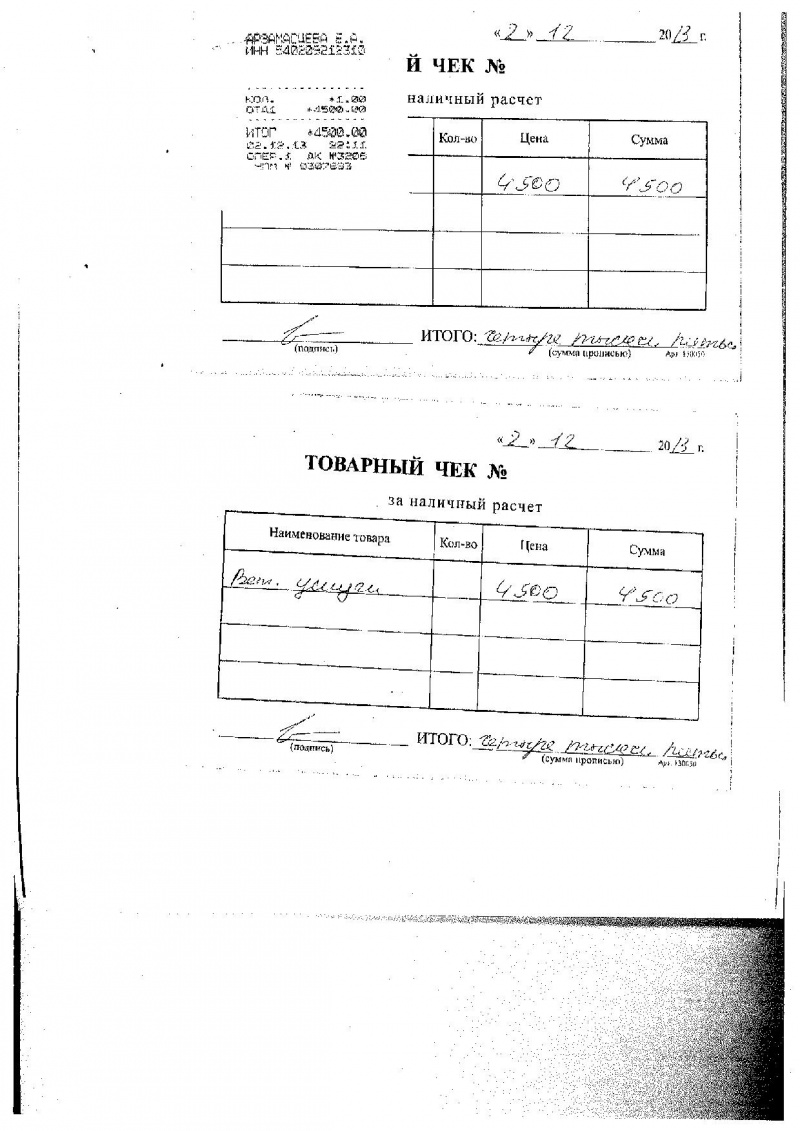 АРЗАМАСЦЕВА Е.А.
ИНН 540209212310
КОЛ. *1.00
ОТД1 *4500.00
ИТОГ *4500.00
02.12.13 22:11
ОПЕР.1 ДК №3206
ЧПМ № 0307693
«2» 12 2013 г.
Й ЧЕК №
наличный расчет
Кол-во Цена Сумма
4500 4500
(подпись)
ИТОГО: четыре тысячи пятьс
(сумма прописью) Арт. 130050
«2» 12 2013 г.
ТОВАРНЫЙ ЧЕК №
за наличный расчет
Наименование товара Кол-во Цена Сумма
Вет. услуги 4500 4500
(подпись)
ИТОГО: четыре тысячи пятьс
(сумма прописью) Арт. 130050